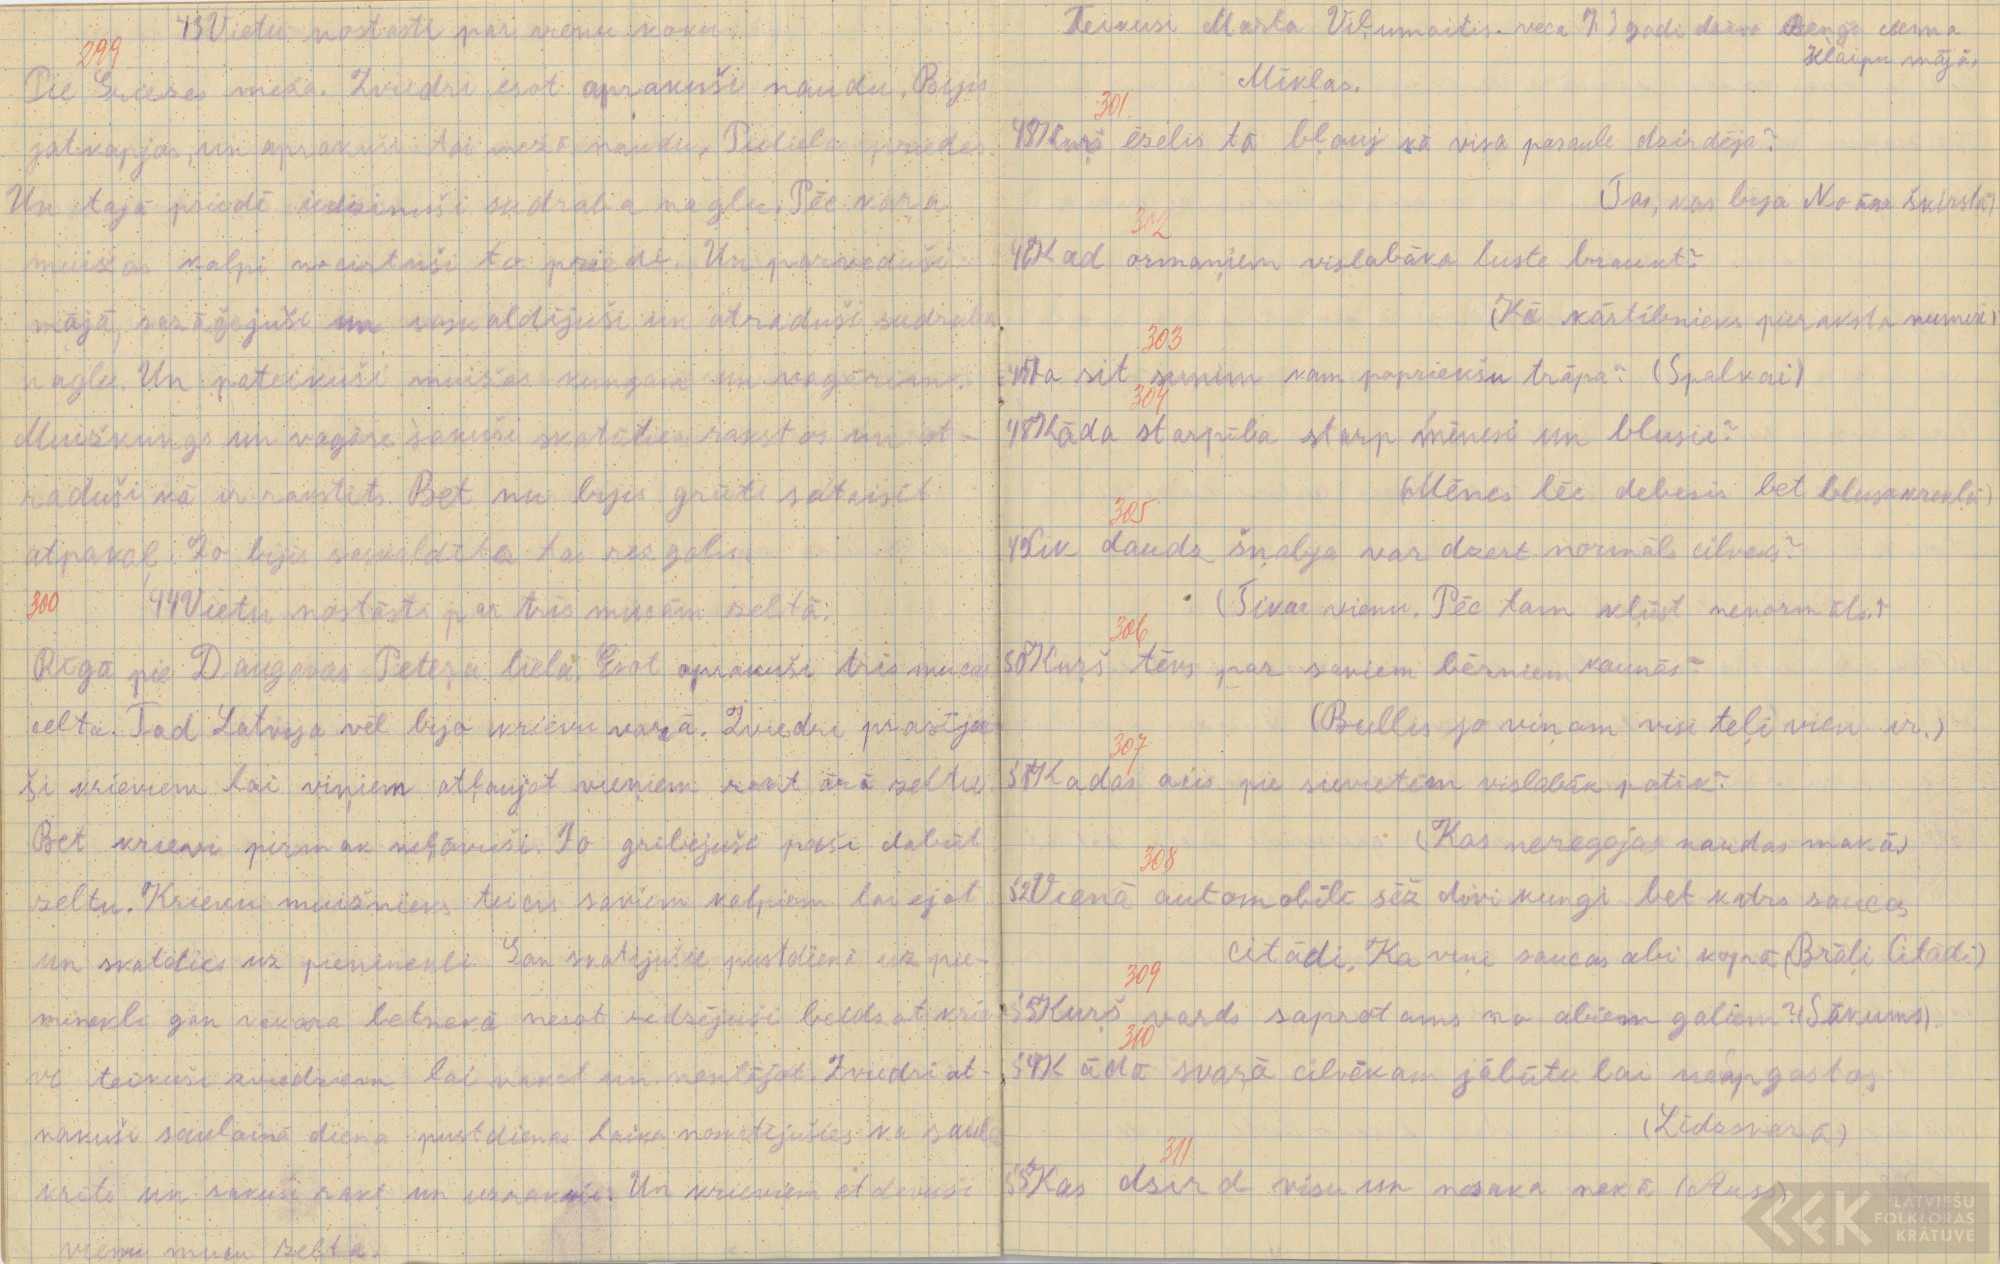 43 Vietu nostāsti par vienu koku.
299
Pie Griezes meža. Zviedri esot aprakuši naudu. Bijis
jātkāpjas, un aprakuši tai mežā naudu. Pielielu priedes.
Un tajā priedē iedzinuši sudraba naglu. Pēc kaŗa
muižas kalpi nocirtuši to priedi. Un pārveduši
mājā, sazāģējuši un saskaldījuši un atraduši sudraba
naglu. Un pateikuši muižas kungam un vagārim.
Muižkungs un vagāre sākuši skatīties rakstos un at-
raduši kā ir rakstīts. Bet nu bijis grūti sataisīt
atpakaļ. Jo bijis saskaldīta tas rezgalis.
300
44 Vietu nostāsti par trīs mucām zeltā.
Rīgā pie Daugavas Pēteŗa lielā. Esot aprakuši trīs mucas
zelta. Tad Latvija vēl bija krievu varā. Zviedri prasīju-
ši krieviem lai viņiem atļaujot vieņiem rakt ārā zeltu.
Bet krievi pirmak neļāvuši. Jo gribējuši paši dabūt
zeltu. Krievu muižnieks teicis saviem kalpiem lai ejot
un skatoties uz pieminekli. Gan skatījušie pustdienā uz pie-
minekli gan vakara bet nekā nesot redzējuši beidzot krie-
vi teikuši zviedriem lai nākot un meklējot. Zviedri at-
nākuši saulainā diena pustdienas laika noskatījušies ka saule
krīt un sākuši rakt un uzrakuši. Un krieviem atdevuši
vienu mucu zelta.
Teikusi Marta Vilumaitis. veca 73 gadi dzīvo Reņģe ciema
Klaipu mājā.
Mīklas.
301
45 Kurš ēzelis tā bļauj kā visa pasaule dzirdēja?
(Tas, kas bija Noāsa šķirstā)
302
46 Kad ormaņiem vislabāka luste braukt?
(Kā kārtībnieks pieraksta numuri)
303
47 Ja sit sunim kam papriekšu trāpa? (Spalvai)
304
48 Kāda starpība starp mēnesi un blusu?
(Mēnes lēc debesis bet blusa kreklā)
305
49 Cik daudz šņabja var dzert normāls cilveks?
(Tikai vienu. Pēc tam kļūst nenormāls.)
306
50 Kuŗš tēvs par saviem bērniem kaunās?
(Bullis jo viņam visi teļi vien ir.)
307
51 Kadas acis pie sievietēm vislabāk patīk?
(Kas neregojas naudas makā)
308
52 Vienā automobilī sēž divi kungi bet katrs saucas
citādi. Ka viņi saucas abi kopā (Brāļi Citādi)
309
53 Kuŗš vards saprotams no abiem galiem? (Sākums)
310
54 Kādā svaŗā cilvēkam jābūtu lai neapgastos
(Līdzsvarā)
311
55 Kas dzird visu un nesaka nekā (Auss)
LATVIEŠU
FOLKLORAS
KRĀTUVE